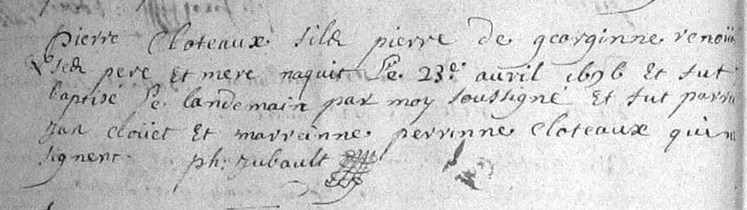 pierre Cloteaux fils de pierre de georginne renou
ses pere Et mere naquit Le 23e avril 1696 Et fut
baptisé Le landemain par moy soussigné Et fut parr
Jan cloüet Et marreinne perrinne Cloteaux qui n
signent ph: Jubault